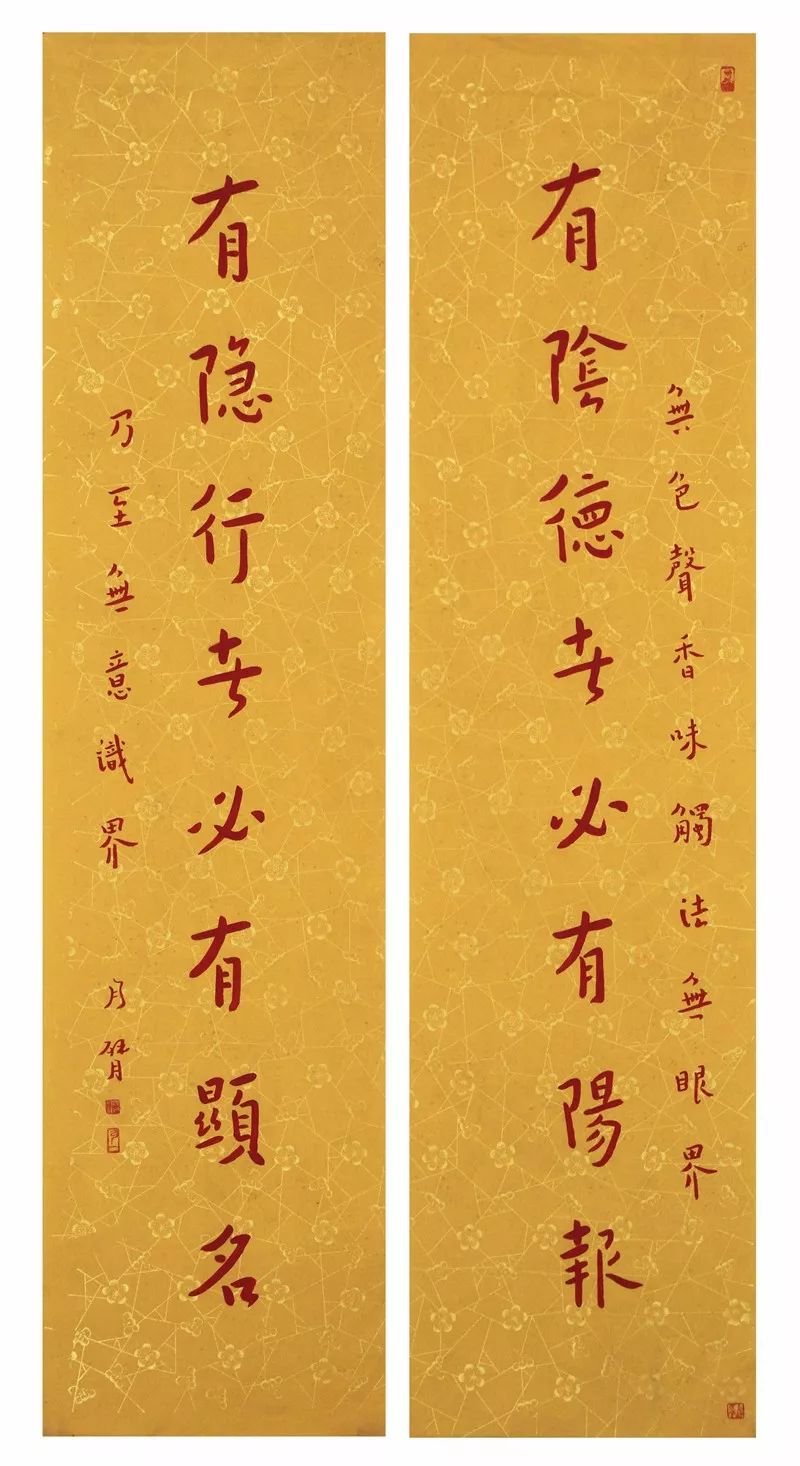 無色聲香味觸法無眼界
有陰德者必有陽報
有隐行者必有顯名
乃至無意識界
月臂